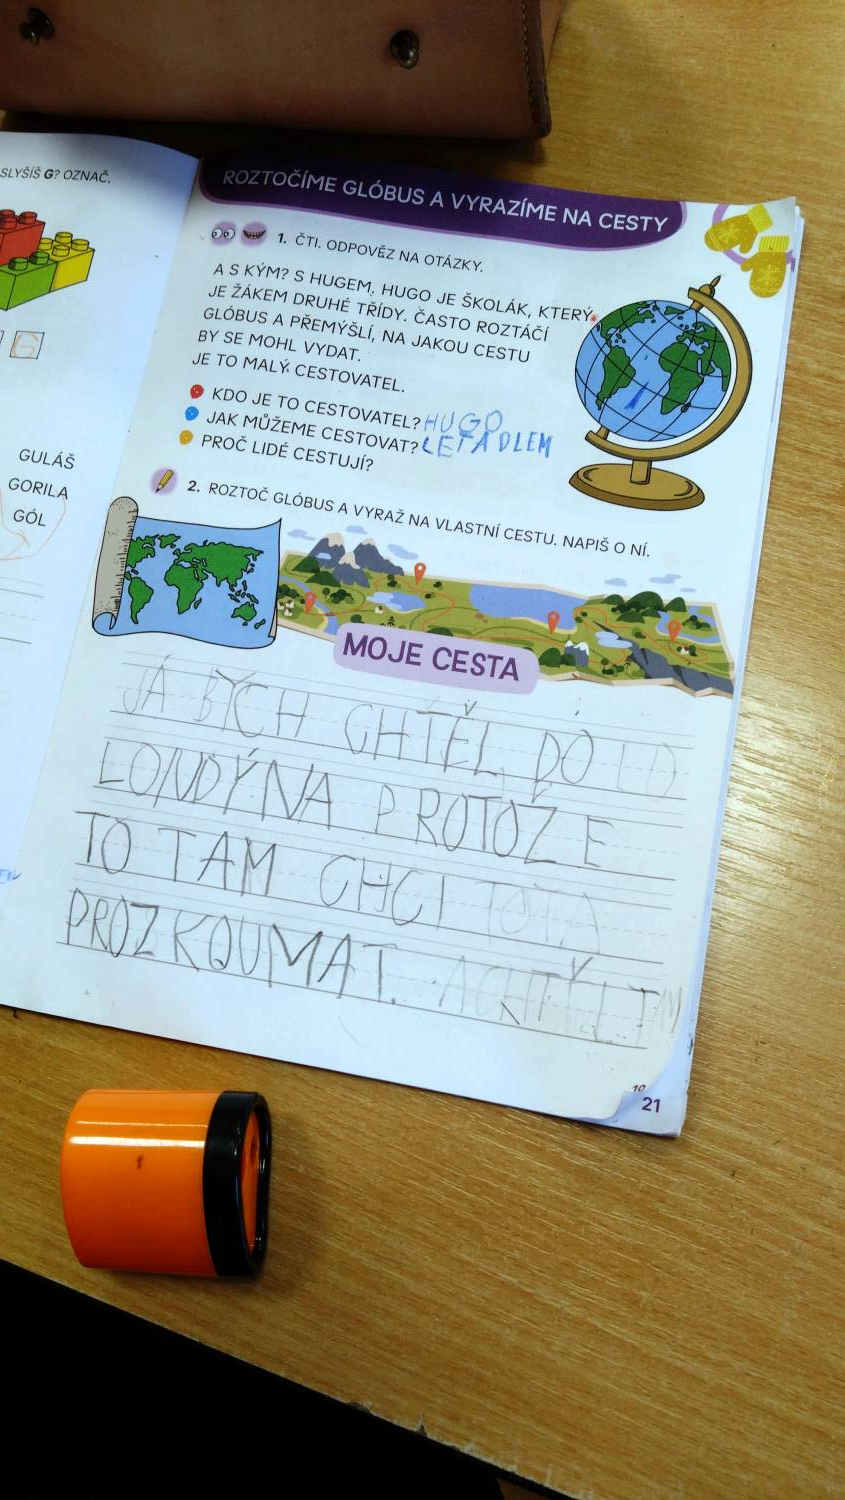 SLYŠÍŠ G? OZNAČ.
G
GULÁŠ
GORILA
GÓL
ROZTOČÍME GLÓBUS A VYRAZÍME NA CESTY
1. ČTI. ODPOVĚZ NA OTÁZKY.
A S KÝM? S HUGEM. HUGO JE ŠKOLÁK, KTERÝ
JE ŽÁKEM DRUHÉ TŘÍDY. ČASTO ROZTÁČÍ
GLÓBUS A PŘEMÝŠLÍ, NA JAKOU CESTU
BY SE MOHL VYDAT.
JE TO MALÝ CESTOVATEL.
KDO JE TO CESTOVATEL? HUGO
JAK MŮŽEME CESTOVAT? LETADLEM
PROČ LIDÉ CESTUJÍ?
2. ROZTOČ GLÓBUS A VYRAŽ NA VLASTNÍ CESTU. NAPIŠ O NÍ.
MOJE CESTA
JÁ BYCH CHTĚL DO LO
LONDÝNA PROTOŽE
TO TAM CHCI TOTA
PROZKOUMAT.
21